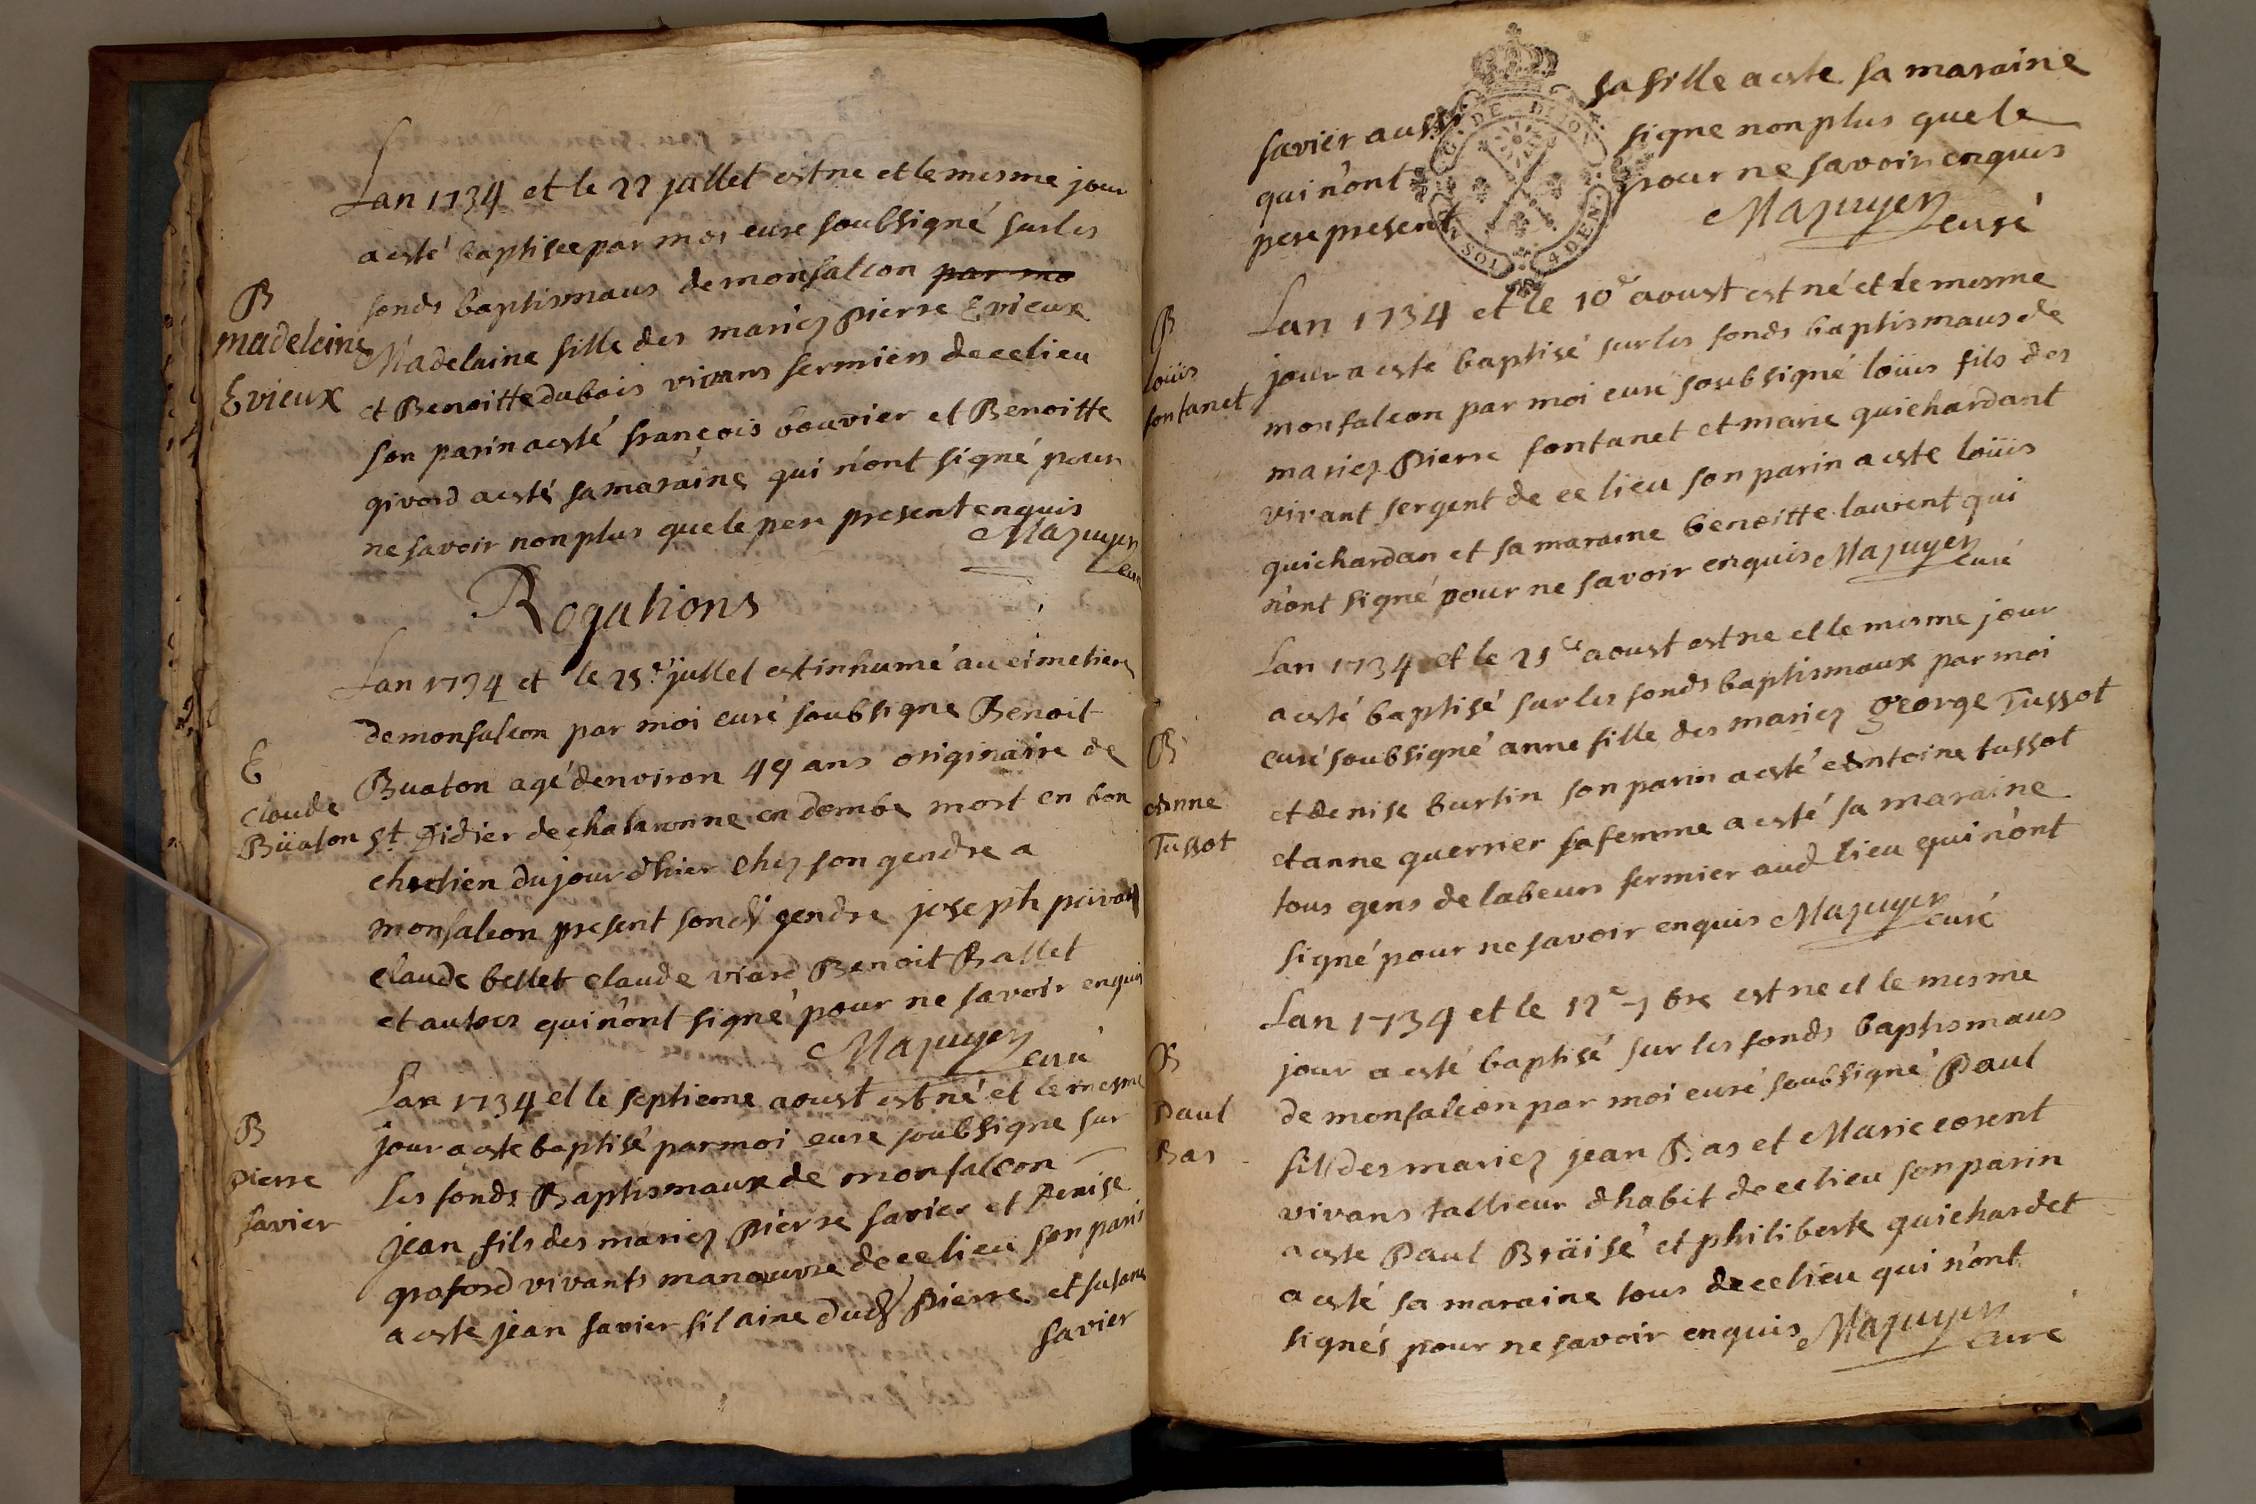 Lan 1734 et le 22 jullet est ne et le mesme jour
a esté baptisée par moi curé soubsigné sur les
fonds baptismaus de monfalcon par mo
B
madeleine
Evieux
Madelaine fille des mariez pierre Evieux
et Benoitte dubois vivans fermiers de ce lieu
son parin a esté françois bouvier et Benoitte
givord a esté sa maraine qui n'ont signé pour
ne savoir non plus que le pere present enquis
Majuyer
curé
Rogations
Lan 1734 et le 25e jullet est inhumé au cimetiere
de monfalcon par moi curé soubsigne Benoit
E
Claude
Büaton
Buaton agé denviron 49 ans originaire de
St Didier de chalaronne en dombe mort en bon
chretien du jour dhier chez son gendre a
monfalcon present sond gendre joseph
claude bellet claude viard Benoit Ballet
et autres qui n'ont signé pour ne savoir enquis
Majuyer
curé
Lan 1734 et le septieme aoust est né et le mesme
B
pierre
savier
jour a este baptisé par moi curé soubsigne sur
les fonds Baptismaux de monfalcon
jean fils des mariez pierre savier et Denise
vivants manouvre de ce lieu son parin
a este jean savier fil aine dud pierre et
savier
sa fille a este sa maraine
savier aussi signe non plus que le
qui n'ont pour ne savoir enquis
pere present Majuyer
curé
DE DIJON
4 DEN
B
loüis
fontanet
Lan 1734 et le 10e aoust est né et le mesme
jour a esté baptisé sur les fonds baptismaus de
monfalcon par moi curé soubsigné loüis fils des
mariez pierre fontanet et marie guichardant
vivant sergent de ce lieu son parin a este loüis
guichardan et sa maraine benoitte laurent qui
n'ont signé pour ne savoir enquis Majuyer
curé
Lan 1734 et le 25e aoust est ne et le mesme jour
a esté baptisé sur les fonds baptismaux par moi
B
Anne
Tussot
curé soubsigné anne fille des mariez george Tussot
et denise burtin son parin a esté Antoine tussot
et anne guerrier sa femme a esté sa maraine
tous gens de labeurs fermier aud lieu qui n'ont
signé pour ne savoir enquis Majuyer
curé
Lan 1734 et le 12e 7bre est ne et le mesme
B
Paul
Bas
jour a esté baptisé sur les fonds baptismaus
de monfalcon par moi curé soubsigné Paul
fils des mariez jean Bas et Marie corent
vivans tallieur dhabit de ce lieu son parin
a este Paul Bräisé et philiberte guichardet
a esté sa maraine tous de ce lieu qui n'ont
signés pour ne savoir enquis Majuyer
curé